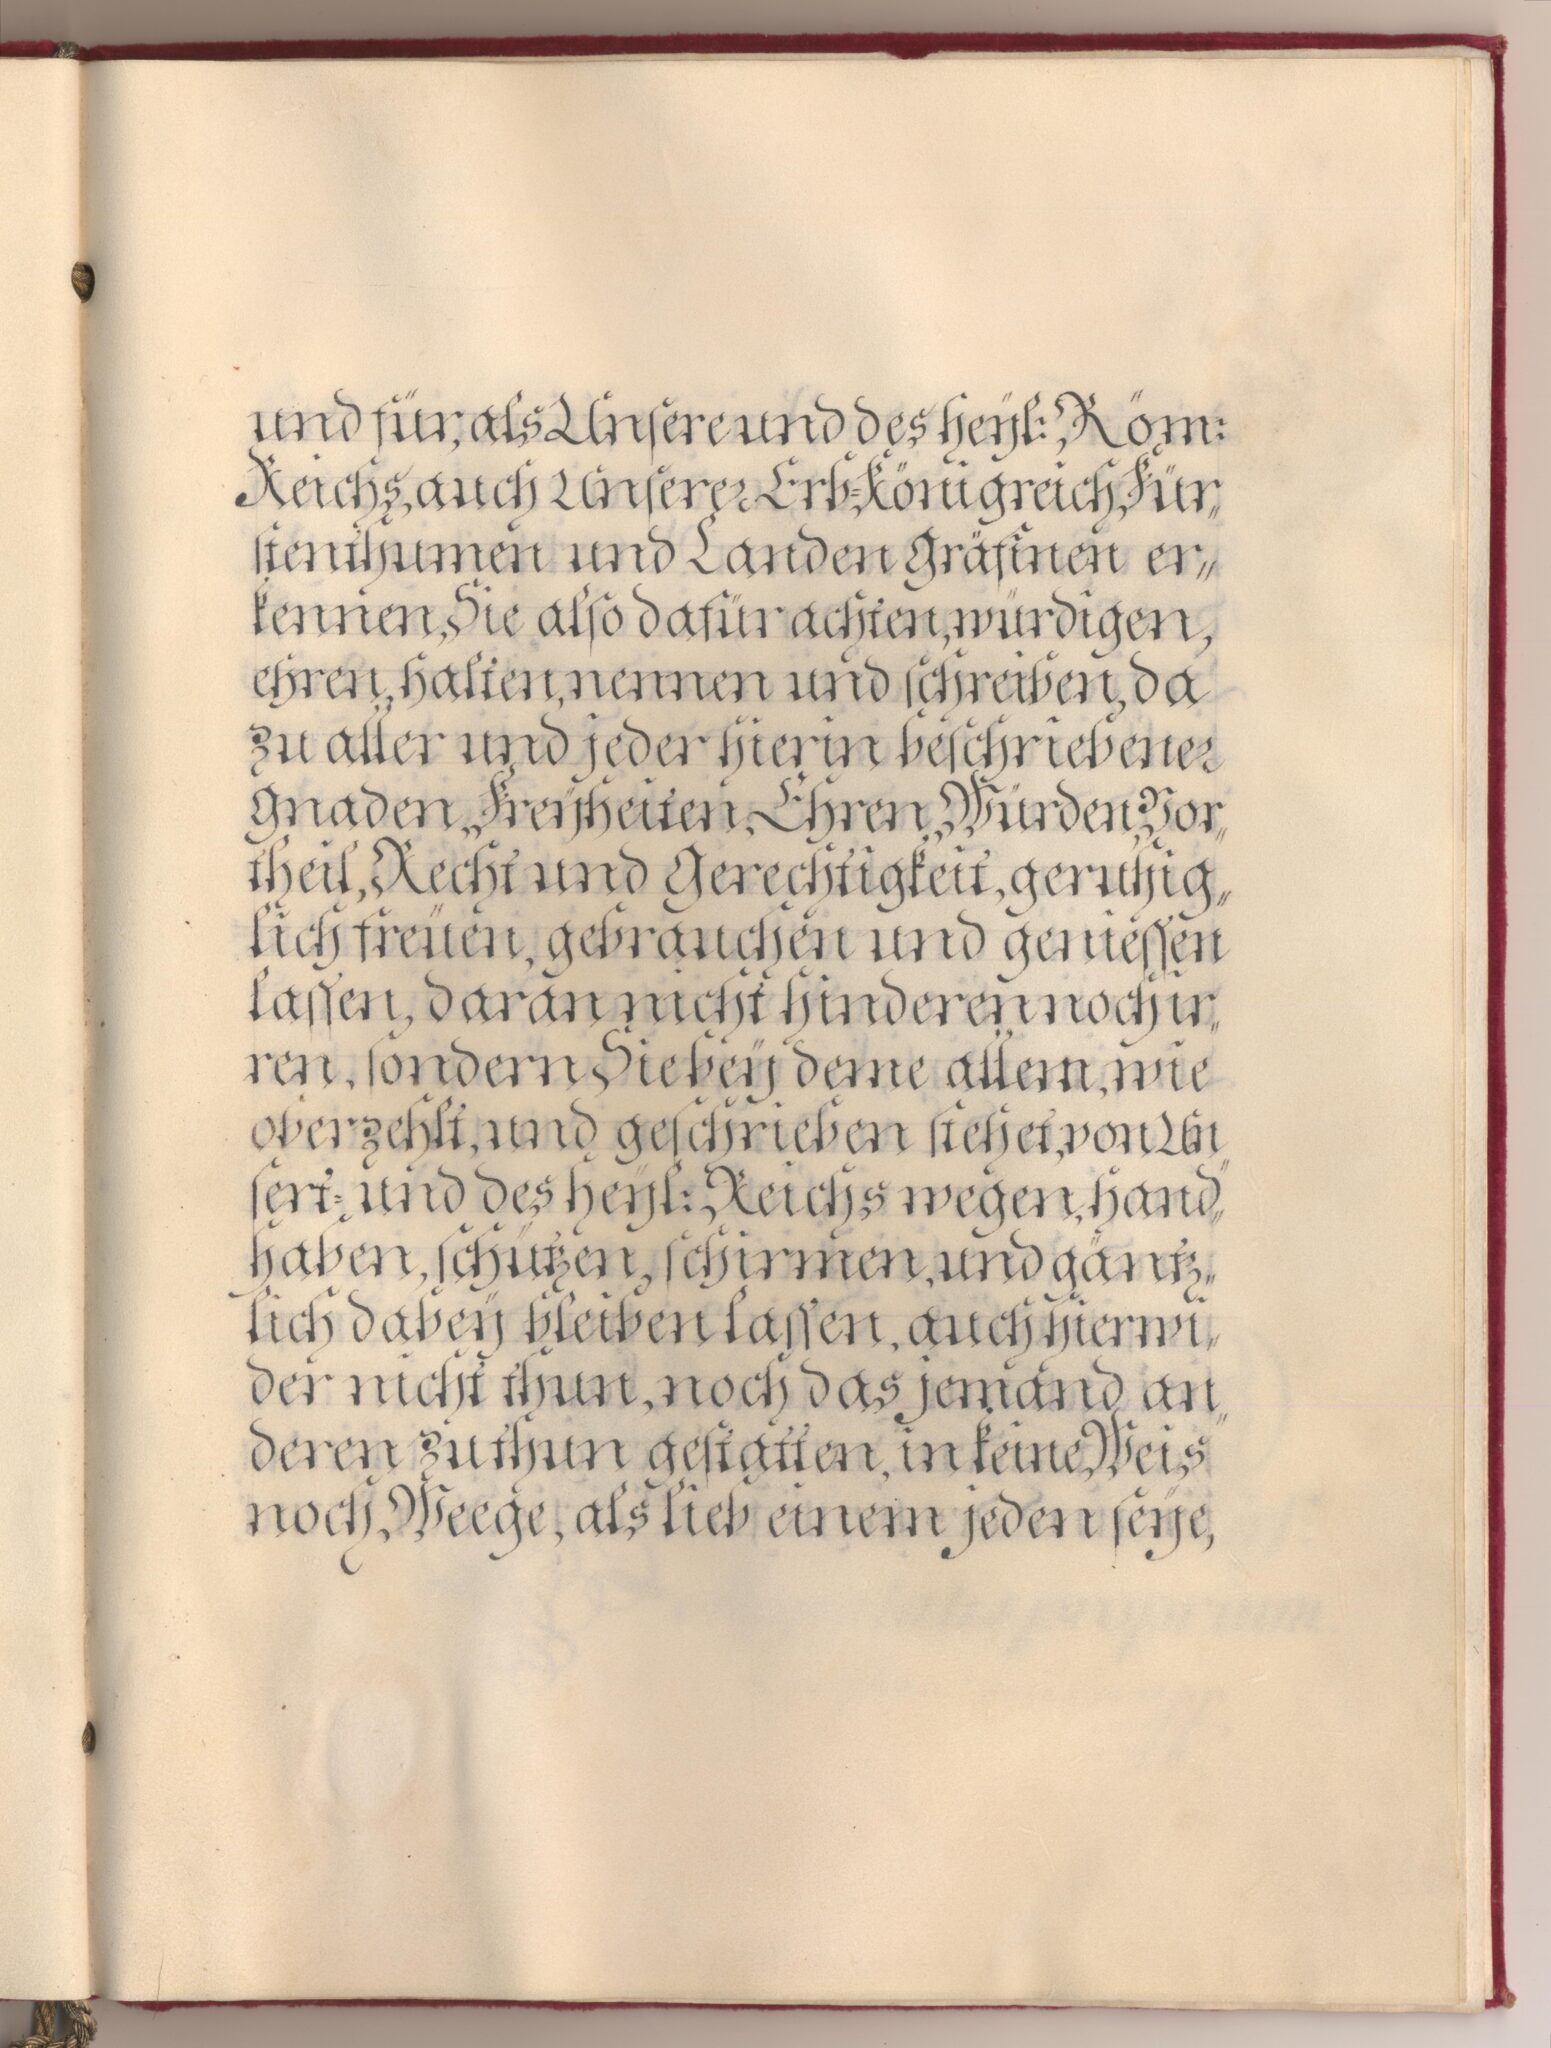 und für, als Unsere und des heyl: Röm:
Reichs, auch Unserer Erb=Königreich, Für„
stenthumen und Landen Gräfinen er„
kennen, Sie also dafür achten, würdigen,
ehren, halten, nennen und schreiben, da
zu aller und jeder hierin beschriebener
Gnaden, Freÿheiten, Ehren, Würden, Vor„
theil, Recht und Gerechtigkeit, geruhig„
lich freüen, gebrauchen und geniessen
lassen, daran nicht hinderen noch ir„
ren, sondern Sie beÿ deme allem, wie
oberzehlt, und geschrieben stehet, von Un„
sert= und des heÿl: Reichs wegen, hand„
haben, schützen, schirmen, und gäntz„
lich dabeÿ bleiben lassen, auch hierwi„
der nicht thun, noch das jemand an„
deren zu thun gestatten, in keine Weis
noch Weege, als lieb einem jeden seÿe,